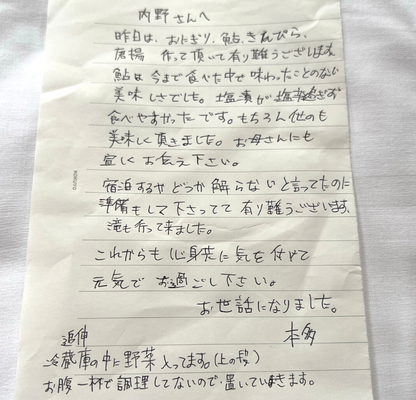 内野さんへ
昨日は、おにぎり、鮎、きんぴら、
唐揚 作って頂いて有り難うございます。
鮎は今まで食べた中で味わったことのない
美味しさでした。塩漬が塩過ぎず
食べやすかったです。もちろん他のも
美味しく頂きました。お母さんにも
宜しくお伝え下さい。
宿泊するかどうか解らないと言ってたのに
準備もして下さってて有り難うございます。
滝も行って来ました。
これからも心身共に気を付けて
元気でお過ごし下さい。
お世話になりました。
本多
追伸
冷蔵庫の中に野菜入ってます。(上の段)
お腹一杯で調理してないので置いていきます。
KOKUYO